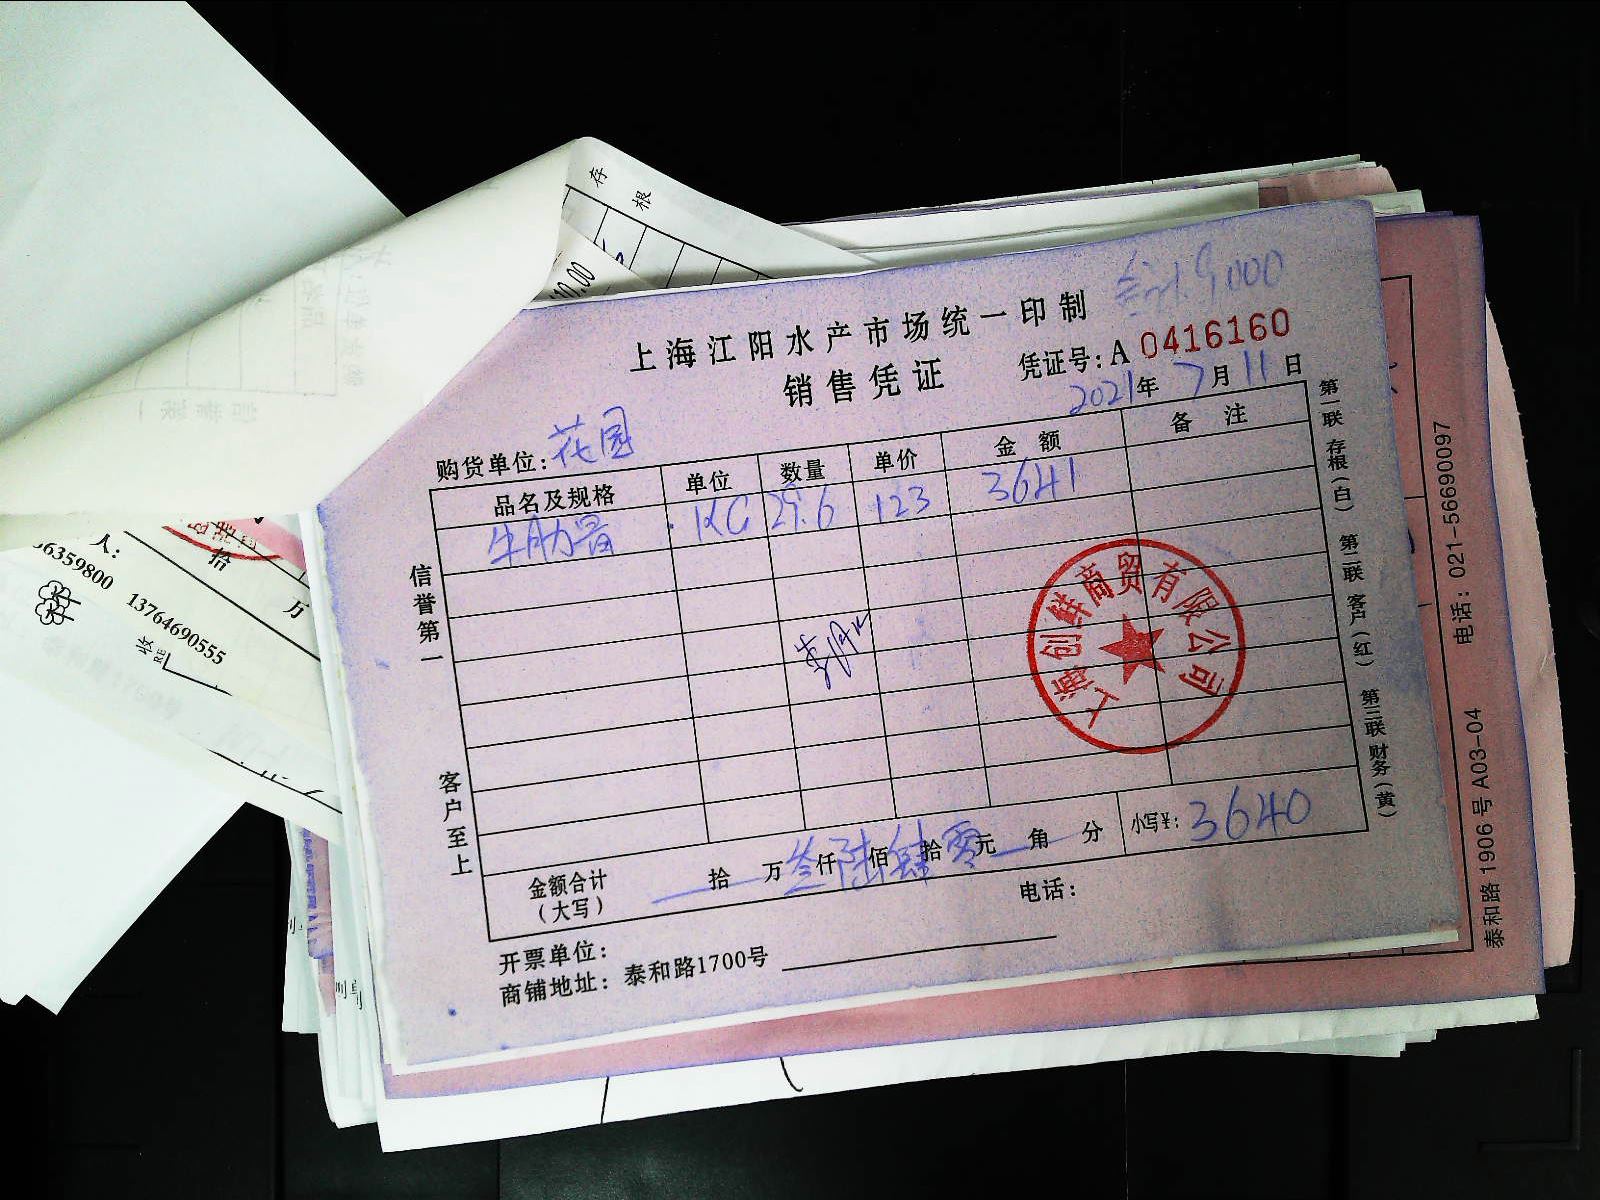 存根
10.00
合计9,000
上海江阳水产市场统一印制
销售凭证
凭证号:A 0416160
2021年7月11日
购货单位:花园
品名及规格 单位 数量 单价 金额 备注
牛肋骨 KG 29.6 123 3641
信誉第一 客户至上
上海创鲜商贸有限公司
金额合计(大写) 拾 万叁仟陆佰肆拾零元 角 分 小写¥:3640
开票单位: 电话:
商铺地址:泰和路1700号
第一联 存根(白) 第二联 客户(红) 第三联 财务(黄)
电话:021-56690097
泰和路1906号A03-04
人:
拾 万
56359800 13764690555
收